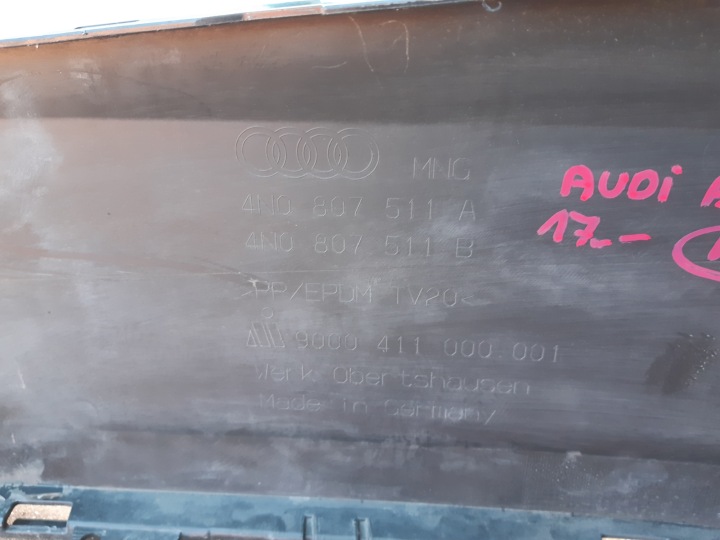 MNG
4N0 807 511 A
4N0 807 511 B
>PP/EPDM TV20<
9000 411 000.001
Werk Obertshausen
Made in Germany
AUDi
17--